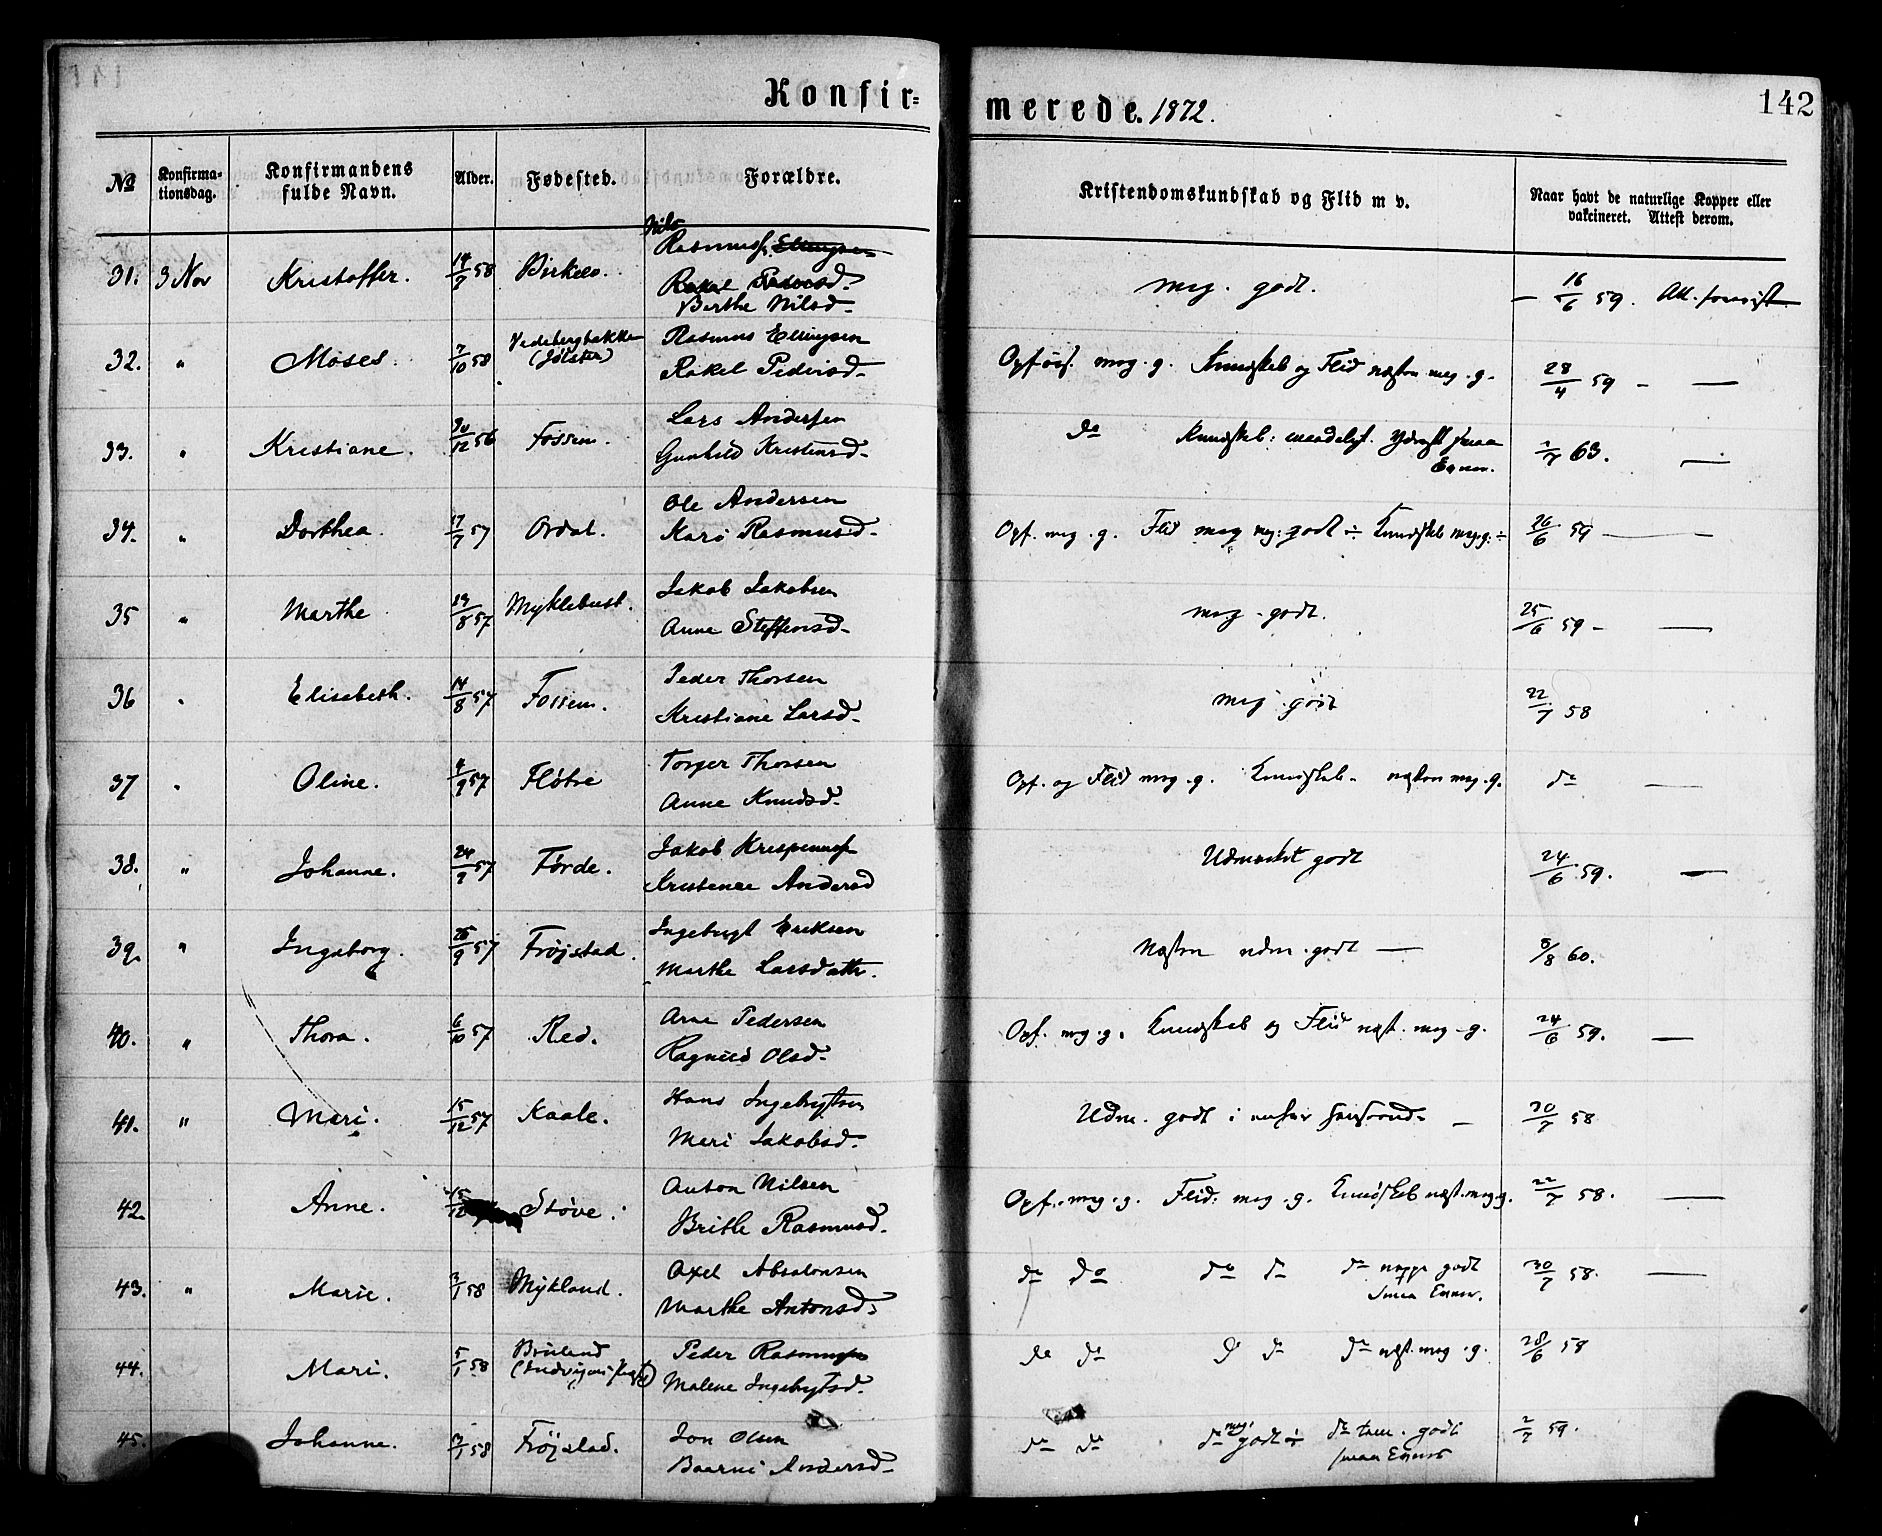 Konfir=
merede. 1872.
142
No
Konfirma-
tionsdag.
Konfirmandens
fulde Navn.
Alder.
Fødested.
Forældre.
Kristendomskundskab og Flid m v.
Naar havt de naturlige Kopper eller
vakcineret. Attest derom.
Nils
31. 3 Nov Kristoffer. 14/7 58 Birkelo. Rasmuss. Ellingsen meg. godt. – 16/6 59. Att.
Rakel Pedersd.
Berthe Nilsd.
32. " Moses. 7/10 58 (Jølster) Rasmus Ellingsen Opførs. meg. g. Kundskab og Flid næsten meg. g. 28/4 59 – —
Rakel Pedersd.
33. " Kristiane. 30/12 56 Fossem. Lars Andersen do Kundskab: maadeligt. Yderst smaa 63. —
Gunhild Kristensd. Evner.
34. " Dorthea. 17/7 57 Ordal. Ole Andersen Opf. meg. g. Flid meg meg: godt ÷ Kundskab meg. g. ÷ 26/6 59 — –
Kari Rasmusd.
35 " Marthe 19/8 57 Myklebust. Jakob Jakobsen meg. godt. 25/6 59 – —
Anne Steffensd.
36 " Elisabeth. 14/8 57 Fossem. Peder Thorsen meg. godt 22/7 58
Kristiane Larsd.
37 " Oline. 4/9 57 Fløtre Torger Thorsen Opf. og Flid meg. g. Kundskab. næsten meg. g. do —
Anne Knudsd.
38. " Johanne. 24/9 57 Førde. Jakob Udmærket godt 24/6 59. —
Andersd
39. " Ingeborg. 25/9 57 Frøjstad. Ingebrigt Eriksen Næsten udm. godt — 8/8 60.
Marthe Larsdatt.
40. " Thora. 6/10 57 Red. Arne Pedersen Opf. meg. g. Kundskab og Flid næst. meg. g. 24/6 59. —
Ragnild Olsd.
41. " Mari. 15/12 57 Kaale. Hans Ingebrytsen Udm. godt i enhver Henseende. – 30/7 58
Mari Jakobsd.
42. Anne. 15/12 Støve. Anton Nilsen Opf. meg. g. Flid: meg. g. Kundskab næst. meg g. 22/7 58. —
Brithe Rasmusd.
43. " Marie. 3/1 58 Mykland. Axel Absalonsen do do do do do neppe godt 30/7 58. —
Marthe Antonsd. Smaa Evner.
44. Mari. 5/1 58 Peder Rasmussen do do do do do næst. meg. g. 28/6 58
Malene Ingebrytsd.
45. Johanne. 58 Frøjstad. Jon Olsen do do do meg. godt ÷ do tem. godt 59.
Andersd. smaa Evner